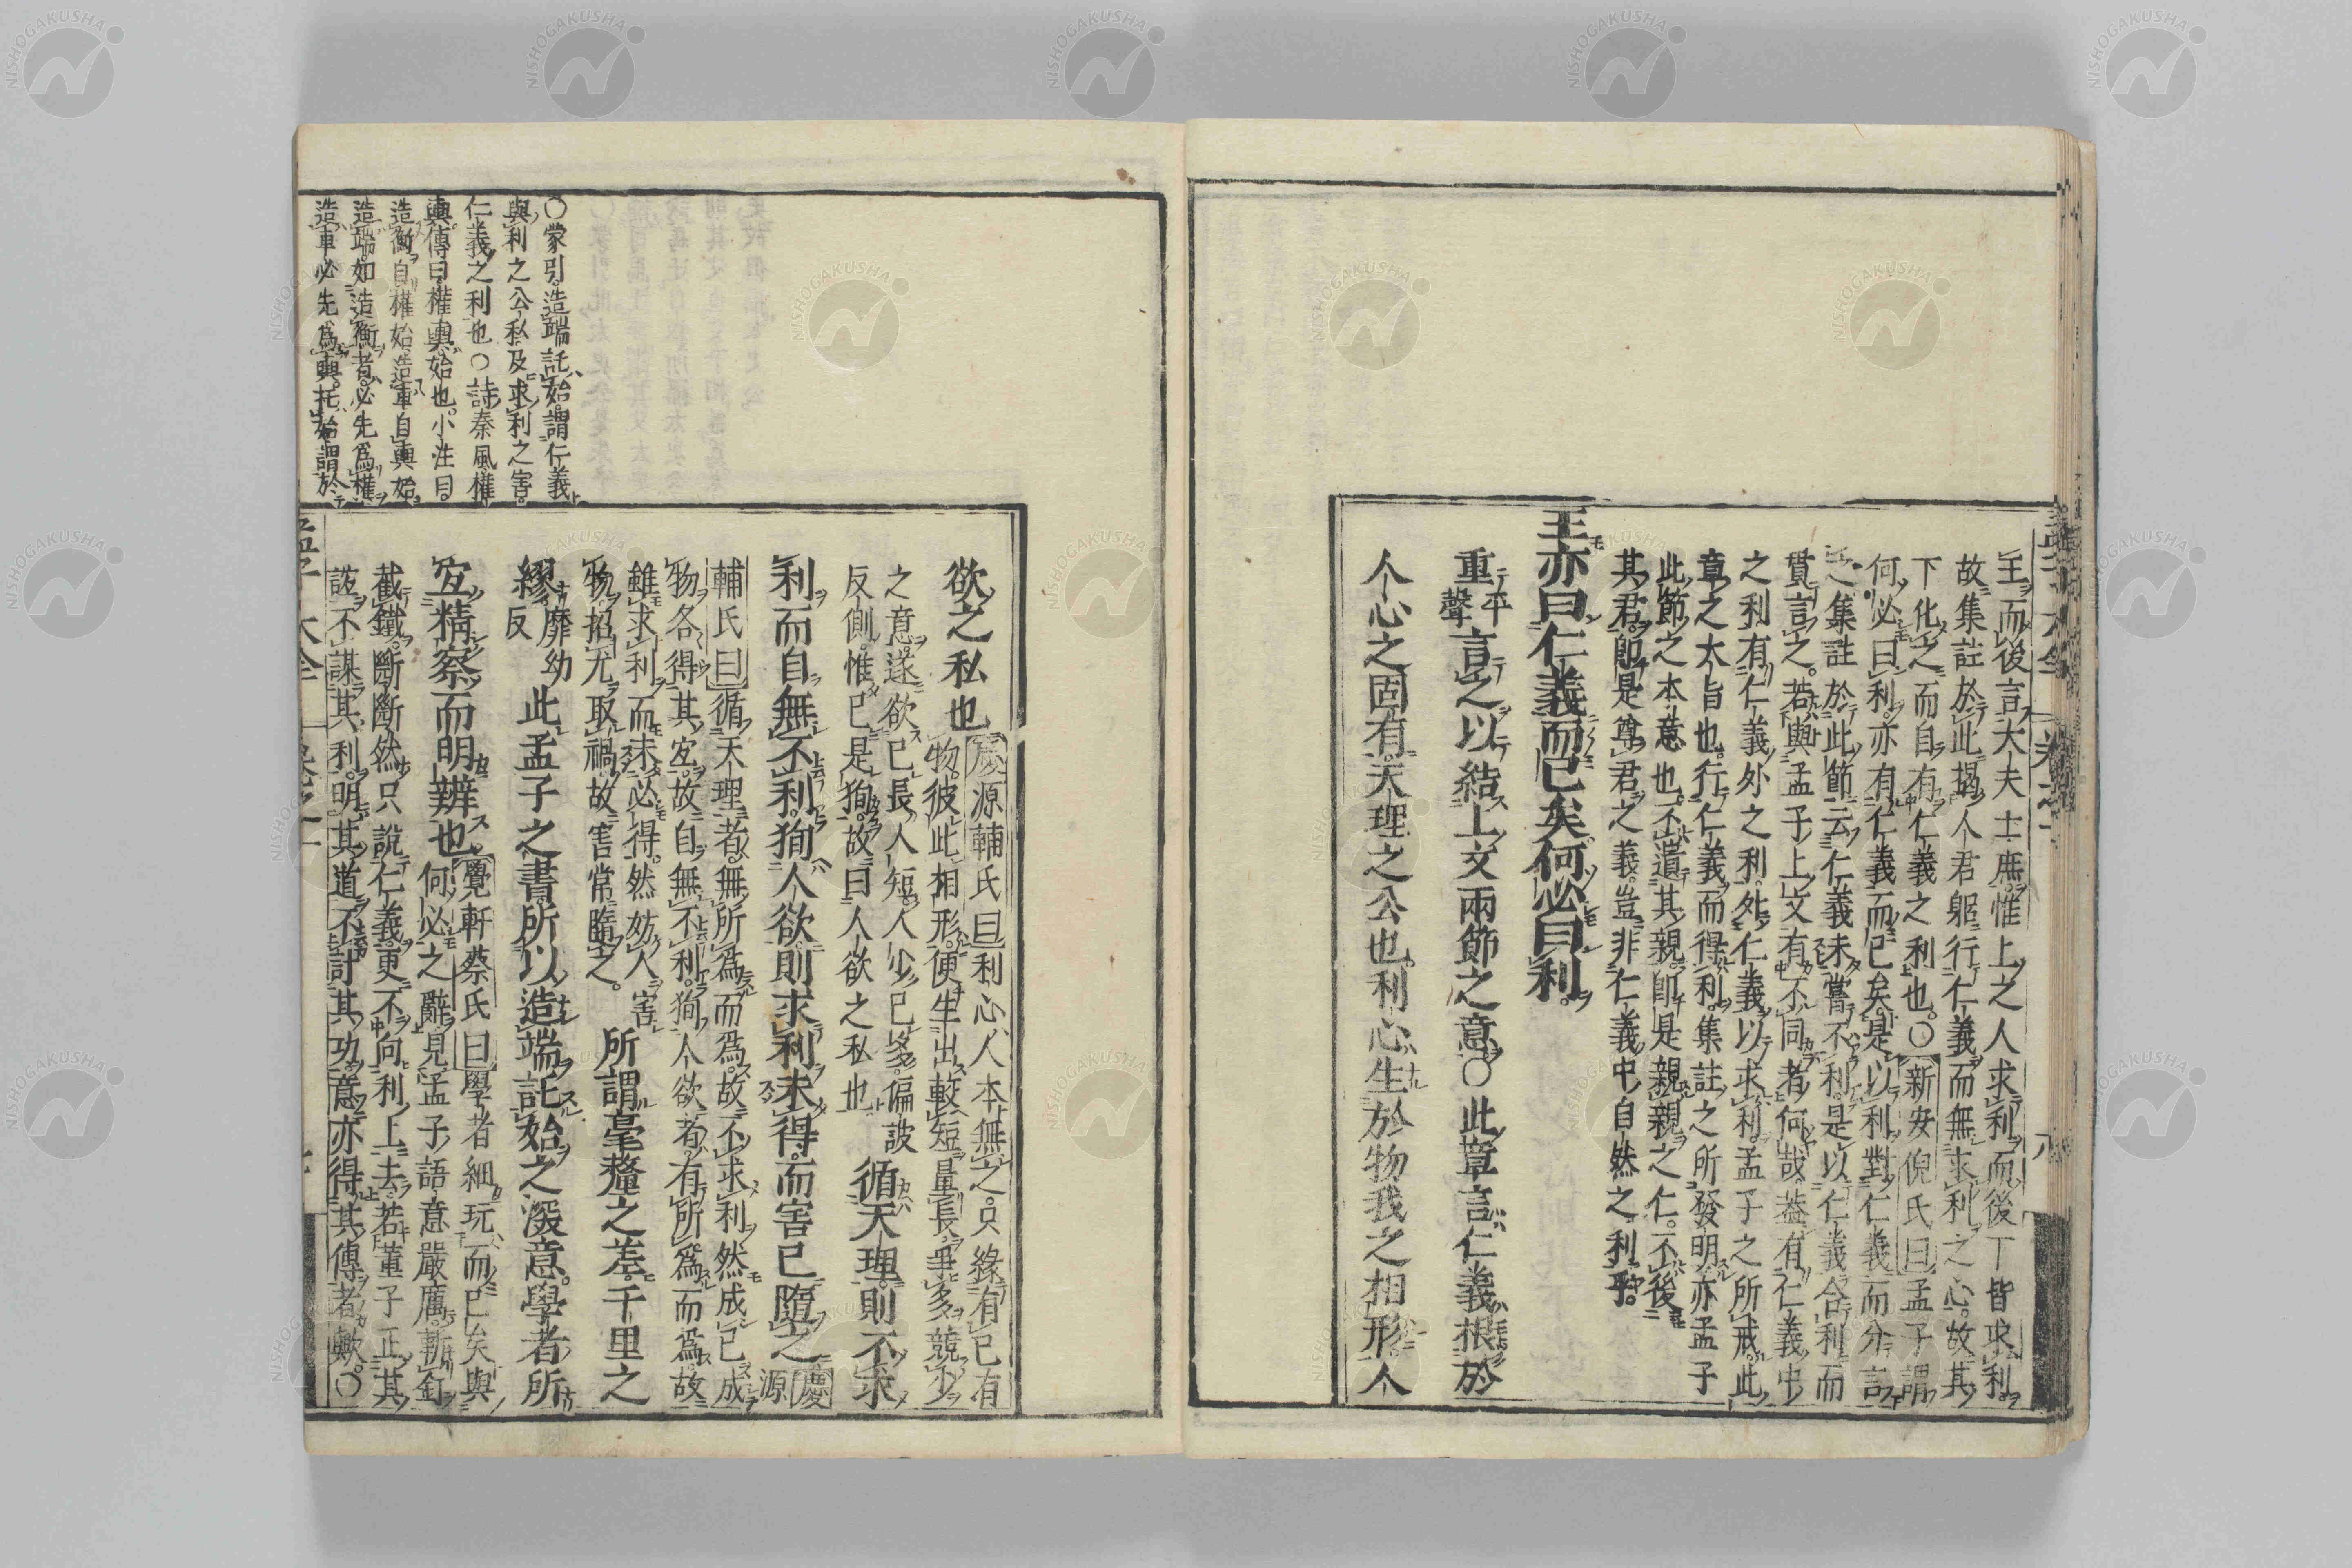 王而後言大夫士庶惟上之人求利而後下皆求利
故集註於此揭人君躬行仁義而無求利之心故其
下化之而自有仁義之利也○新安倪氏曰孟子謂
何必曰利亦有仁義而已矣是以利對仁義而分言
之集註於此節云仁義未嘗不利是以仁義合利而
貫言之若與孟子上文有不同者何哉蓋有仁義中
之利有仁義外之利外仁義以求利孟子之所戒此
章之大旨也行仁義而得利集註之所發明亦孟子
此節之本意也不遺其親即是親親之仁不後
其君即是尊君之義豈非仁義中自然之利乎
王亦曰仁義而已矣何必曰利
重平聲言之以結上文兩節之意○此章言仁義根於
人心之固有天理之公也利心生於物我之相形人
欲之私也慶源輔氏曰利心人本無之只緣有己有
物彼此相形便生出較短量長爭多競少
之意遂欲己長人短人少己多偏詖
反側惟己是狥故曰人欲之私也循天理則不求
利而自無不利狥人欲則求利未得而害已隨之慶源
輔氏曰循天理者無所為而為故不求利然成己成
物各得其宜故自無不利狥人欲者有所為而為故
雖求利而未必得然妨人害
物招尤取禍故害常隨之所謂毫釐之差千里之
繆靡幼反此孟子之書所以造端託始之深意學者所
宜精察而明辨也覺軒蔡氏曰學者細玩而已矣與
何必之辭見孟子語意嚴厲斬釘
截鐵斷斷然只說仁義更不向利上去若董子正其
誼不謀其利明其道不計其功意亦得其傳者歟○
孟子大全
○蒙引造端託始謂仁義
與利之公私及求利之害
仁義之利也○詩秦風權
輿傳曰權輿始也小注曰
造衡自權始造車自輿始
造端如造衡者必先為權
造車必先為輿托始謂於
NISHOGAKUSHA